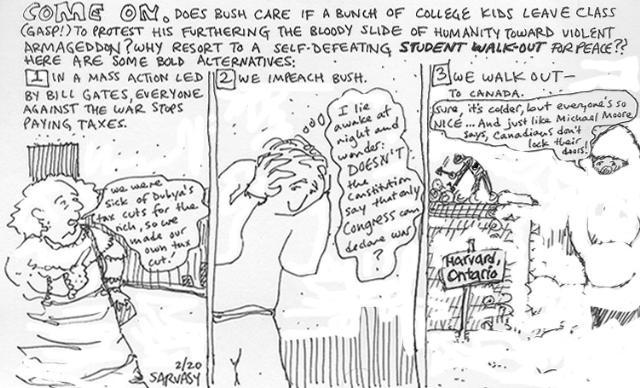 COME ON. DOES BUSH CARE IF A BUNCH OF COLLEGE KIDS LEAVE CLASS
(GASP!) TO PROTEST HIS FURTHERING THE BLOODY SLIDE OF HUMANITY TOWARD VIOLENT
ARMAGEDDON? WHY RESORT TO A SELF-DEFEATING STUDENT WALK-OUT FOR PEACE??
HERE ARE SOME BOLD ALTERNATIVES:
1 IN A MASS ACTION LED
BY BILL GATES, EVERYONE
AGAINST THE WAR STOPS
PAYING TAXES.
we were
sick of Dubya's
tax cuts for the
rich, so we
made our
own tax
cut!
2/20
SARVASY
2 WE IMPEACH BUSH.
I lie
awake at
night and
wonder:
DOESN'T
the
Constitution
say that only
Congress can
declare war
?
3 WE WALK OUT—
TO CANADA.
Sure, it's colder, but everyone's so
NICE... And just like Michael Moore
says, Canadians don't
lock their
doors!
Harvard,
Ontario